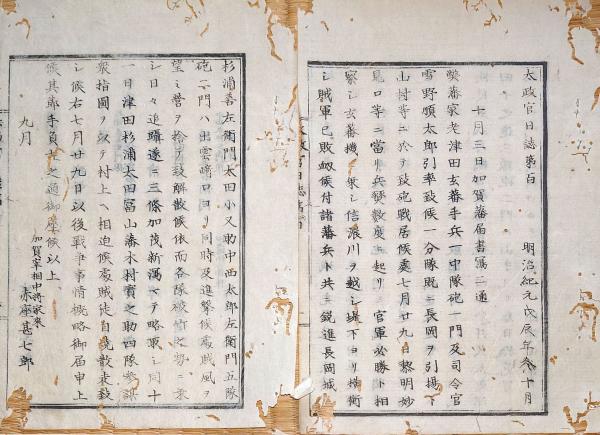 太政官日誌第百
明治紀元戊辰年冬十月
十月三日加賀藩届書寫二通
弊藩家老津田玄蕃手兵一中隊砲一門及司令官
雪野順太郎引率致候一分隊既ニ長岡ヲ引揚ケ
山村等ニ於テ致砲戰居候處七月廿九日黎明妙
見口等ニ當リ兵燹數度上起リ官軍必勝ト相
察シ玄蕃機ニ乘シ信濃川ヲ越シ堤下ヨリ横衝
シ賊軍已敗岋候付諸藩兵ト共ニ鋭進長岡城
杉浦善左衛門太田小又助中西太郎左衛門五隊
砲二門ハ出雲﨑口ヨリ同時及進撃候處賊風ヲ
望ミ營ヲ捨テ致解散候依而各隊破竹之勢ニ乘
シ日々追躡遂ニ三條加茂新潟マテ略取シ同十
一日津田杉浦太田冨山藩木村實之助四隊參謀
衆指圖ヲ以テ村上ヘ相迫候處賊徒自潰散走致
シ候右七月廿九日以後戰爭事情概略御届申上
候其節手負等之通御座候以上
九月
加賀宰相中將家來
赤座甚七郎